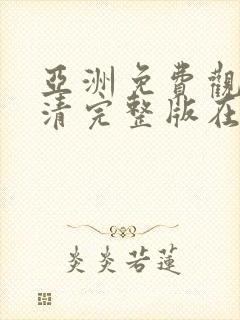 亞洲免費觀
清完整版在
炎炎若蓮